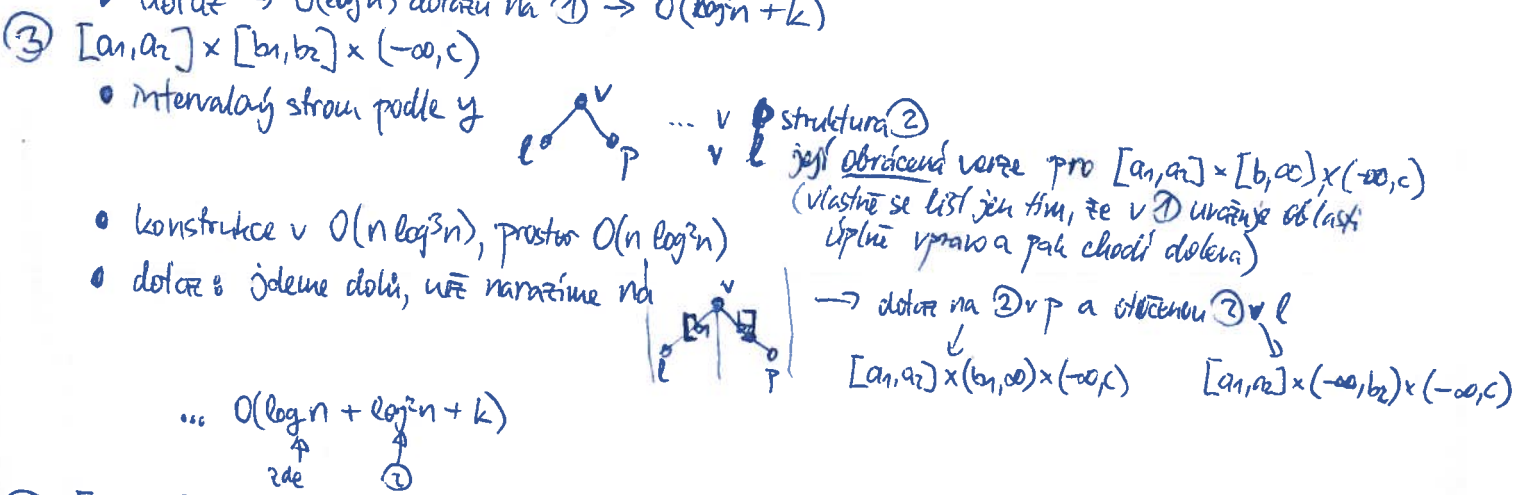 dotaz → O(log n) dotazů na ① → O(log n + k)
③ [a1,a2] × [b1,b2] × (-∞,c)
• intervalový strom podle y
v
l
p
... v p struktura ②
v l její obrácená verze pro [a1,a2] × [b,∞) × (-∞,c)
(vlastně se liší jen tím, že v ① uvažuje oblasti
úplně vpravo a pak chodí doleva)
• konstrukce v O(n log³n), prostor O(n log²n)
• dotaz: jdeme dolů, než narazíme na
v
b1
b2
l
p
→ dotaz na ② v p a otočenou ② v l
[a1,a2] × (b1,∞) × (-∞,c)
[a1,a2] × (-∞,b2) × (-∞,c)
... O(log n + log²n + k)
zde ②